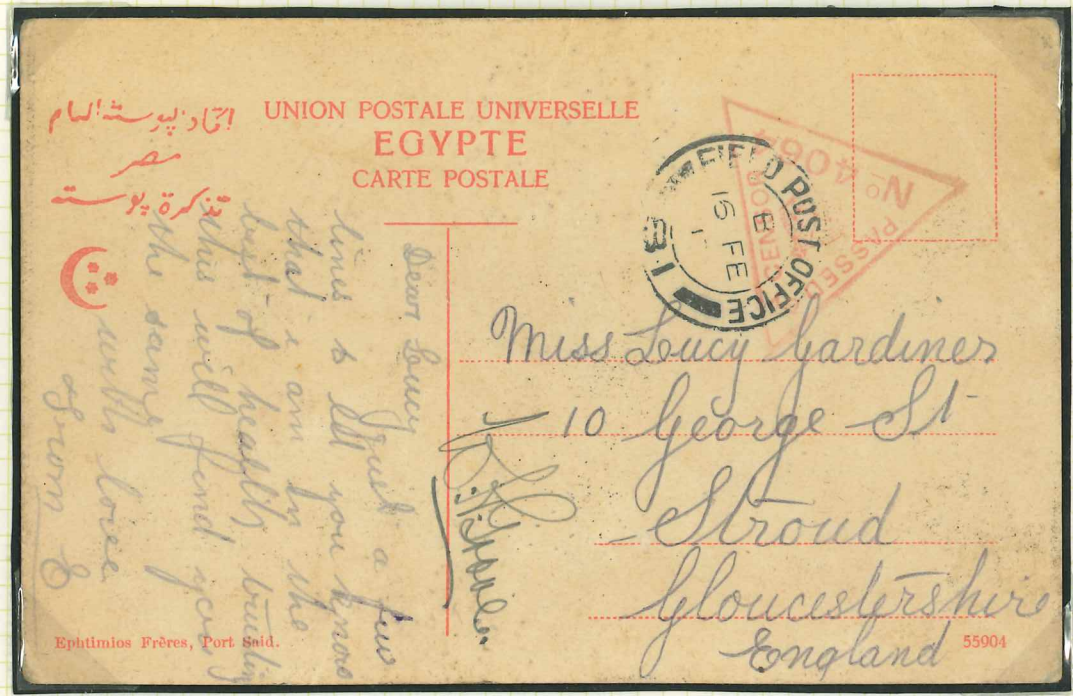 اتحاد پوسته العام
مصر
تذكرة پوسته
UNION POSTALE UNIVERSELLE
EGYPTE
CARTE POSTALE
PASSED
CENSOR
Nº 4064
FIELD POST OFFICE
B
16 FE
1
B1
Dear Lucy
Just a few
lines to let you know
that i am in the
best of health trusting
this will find you
the same
with love
from E
Miss Lucy Gardiner
10 George St
Stroud
Gloucestershire
England
Ephtimios Frères, Port Said.
55904